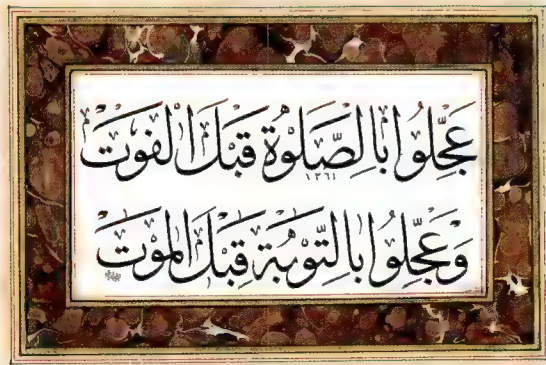 عَجِّلُوا بِالصَّلٰوةِ قَبْلَ الْفَوْتِ
١٢٦١
وَعَجِّلُوا بِالتَّوْبَةِ قَبْلَ الْمَوْتِ